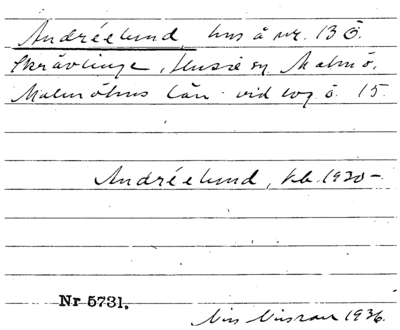 Andréelund, hus å nr. 13 Ö.
Skrävlinge, Husie sn, Malmö,
Malmöhus län. vid väg ö. 15.
Andréelund, kb. 1930-
Nr 5731.
1936